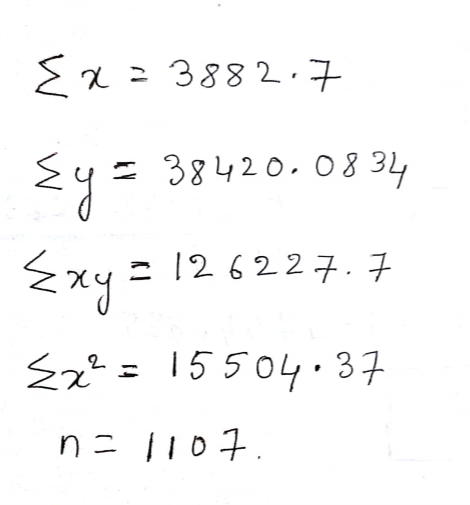 Σx = 3882.7
Σy = 38420.0834
Σxy = 126227.7
Σx² = 15504.37
n = 1107.